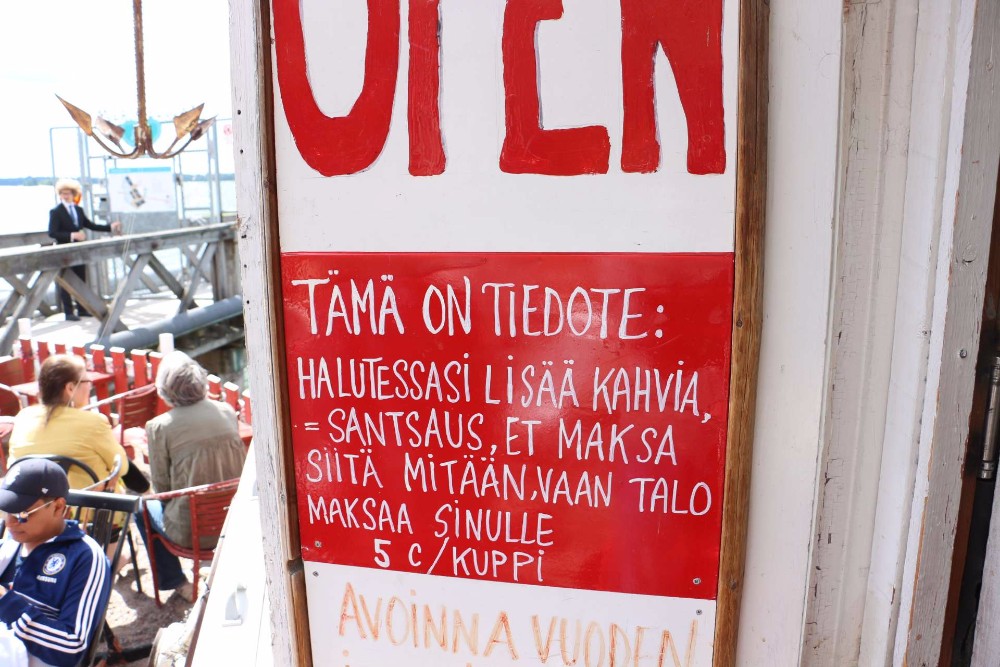 OPEN
TÄMÄ ON TIEDOTE:
HALUTESSASI LISÄÄ KAHVIA,
= SANTSAUS, ET MAKSA
SIITÄ MITÄÄN, VAAN TALO
MAKSAA SINULLE
5 C/KUPPI
AVOINNA VUODEN